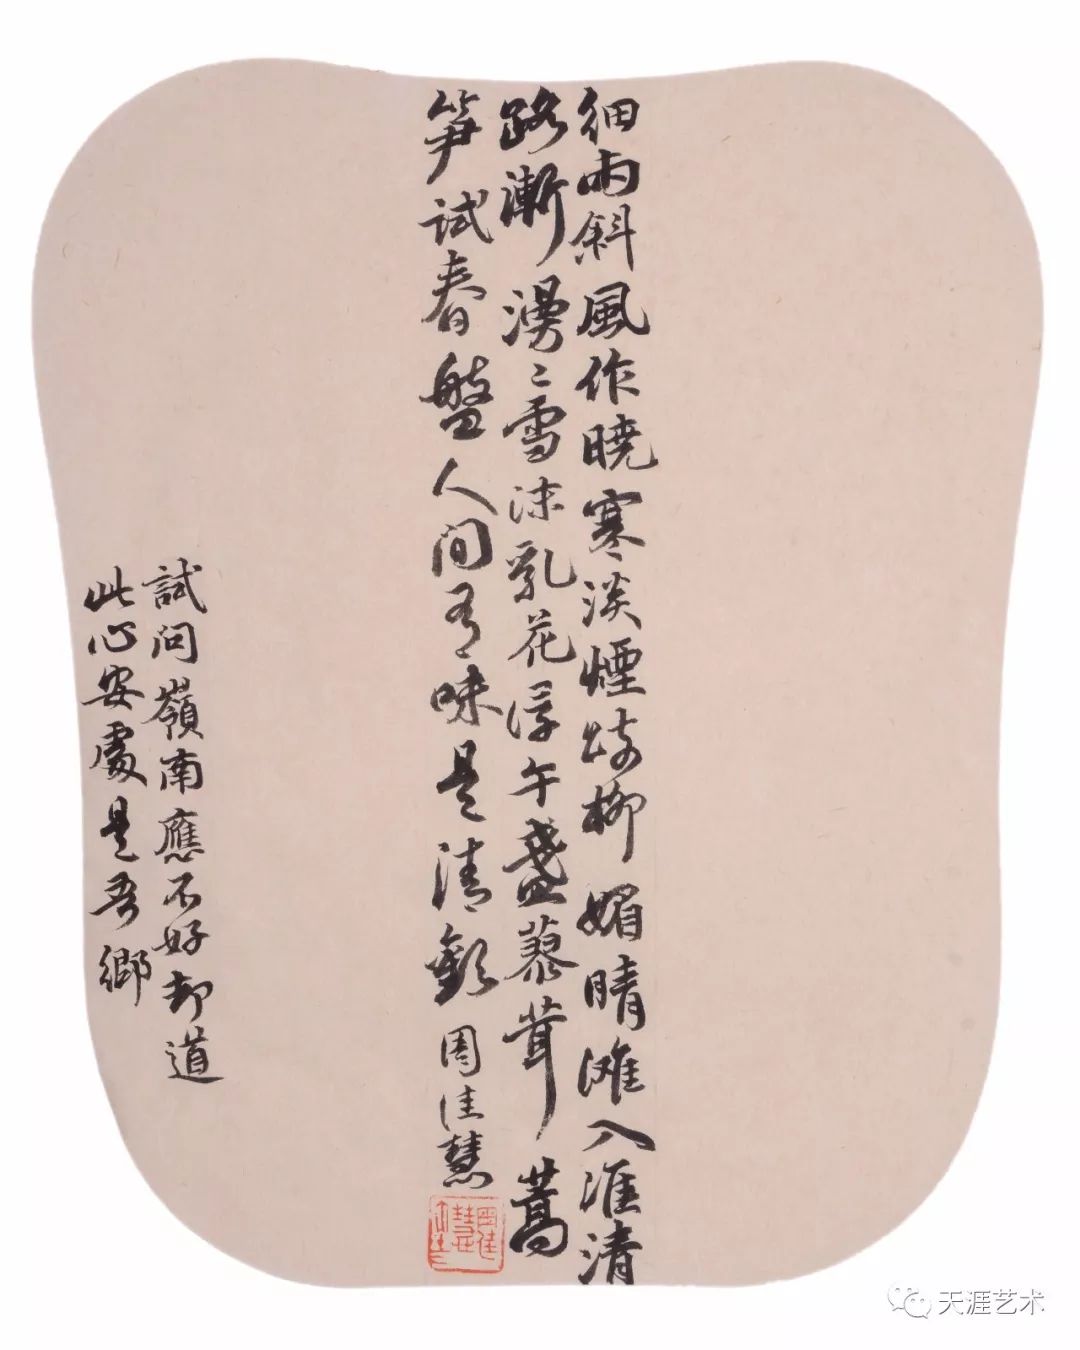 細雨斜風作曉寒淡煙疎柳媚晴灘入淮清
路漸漫〻雪沫乳花浮午盞蓼茸蒿
笋試春盤人間有味是清歡 周佳慧
試問嶺南應不好却道
此心安處是吾鄉
天涯艺术